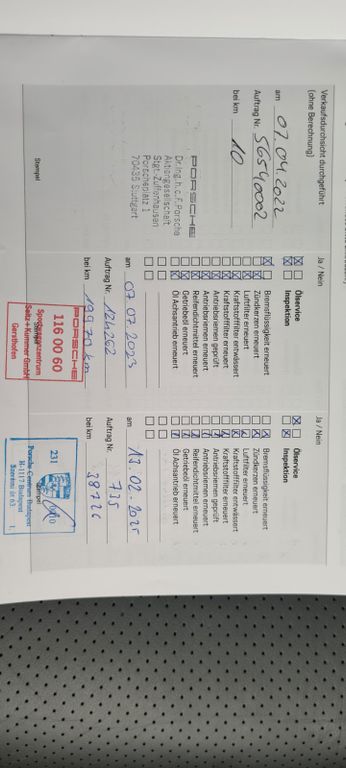 Verkaufsdurchsicht durchgeführt
(ohne Berechnung)
am 07.04.2022
Auftrag Nr. 56540002
bei km 10
PORSCHE
Dr. Ing. h. c. F. Porsche
Aktiengesellschaft
Stgt-Zuffenhausen
Porscheplatz 1
70435 Stuttgart
Stempel
Ja / Nein
Ölservice
Inspektion
Bremsflüssigkeit erneuert
Zündkerzen erneuert
Luftfilter erneuert
Kraftstofffilter entwässert
Kraftstofffilter erneuert
Antriebsriemen geprüft
Antriebsriemen erneuert
Reifendichtmittel erneuert
Getriebeöl erneuert
Öl Achsantrieb erneuert
am 07 07 2023
Auftrag Nr. 124202
bei km 19970 km
PORSCHE
116 00 60
Sportwagenzentrum
Seitz+Kummer GmbH
Gersthofen
Ja / Nein
Ölservice
Inspektion
Bremsflüssigkeit erneuert
Zündkerzen erneuert
Luftfilter erneuert
Kraftstofffilter entwässert
Kraftstofffilter erneuert
Antriebsriemen geprüft
Antriebsriemen erneuert
Reifendichtmittel erneuert
Getriebeöl erneuert
Öl Achsantrieb erneuert
am 13.02.2025
Auftrag Nr. 735
bei km 38726
231
Stempel
Porsche Centrum Budapest
H-1117 Budapest
Szerémi út 63.
1.